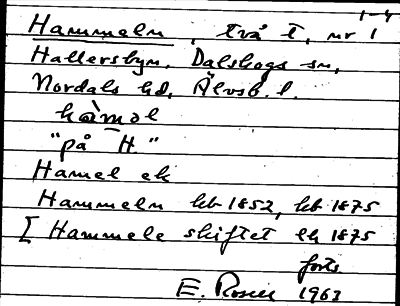 1-4
Hammeln, två t, nr 1
Hallersbyn, Dalskogs sn,
Nordals hd, Älvsb. l.
hàməl
"på H."
Hamel ek
Hammeln hb 1852, hb 1875
[ Hammele skiftet ek 1875
forts
E. Rosell 1963